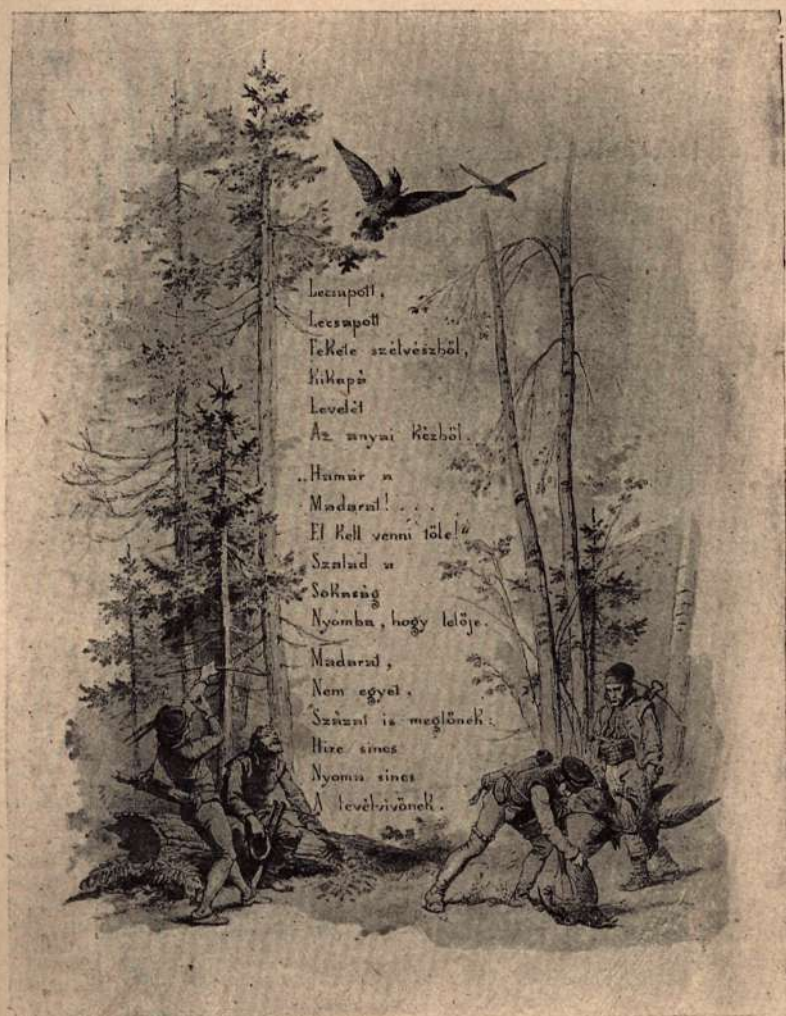 Lecsapott,
Lecsapott
Fekete szélvészből,
Kikapá
Levelét
Az anyai kézből.
„Hamár a
Madarat! . . .
El kell venni tőle!"
Szalad a
Sokaság
Nyomba, hogy lelője.
Madarat,
Nem egyet,
Százat is meglőnek:
Hire sincs
Nyoma sincs
A levélvivőnek.